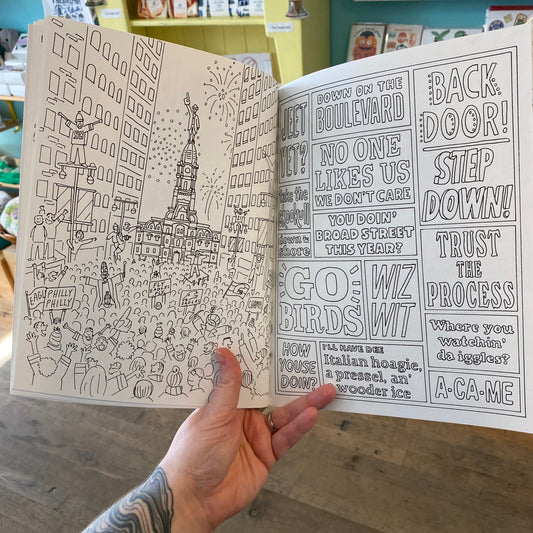 EAGLES
PHILLY
PHILLY
JEET
YET?
take the
skookull
down the
shore
DOWN ON THE
BOULEVARD
NO ONE
LIKES US
WE DON'T CARE
YOU DOIN'
BROAD STREET
THIS YEAR?
GO
BIRDS
WIZ
WIT
HOW
YOUSE
DOIN?
I'LL HAVE DEE
Italian hoagie,
a pressel, an'
wooder ice
BACK
DOOR!
STEP
DOWN!
TRUST
THE
PROCESS
Where you
watchin'
da iggles?
A-CA-ME